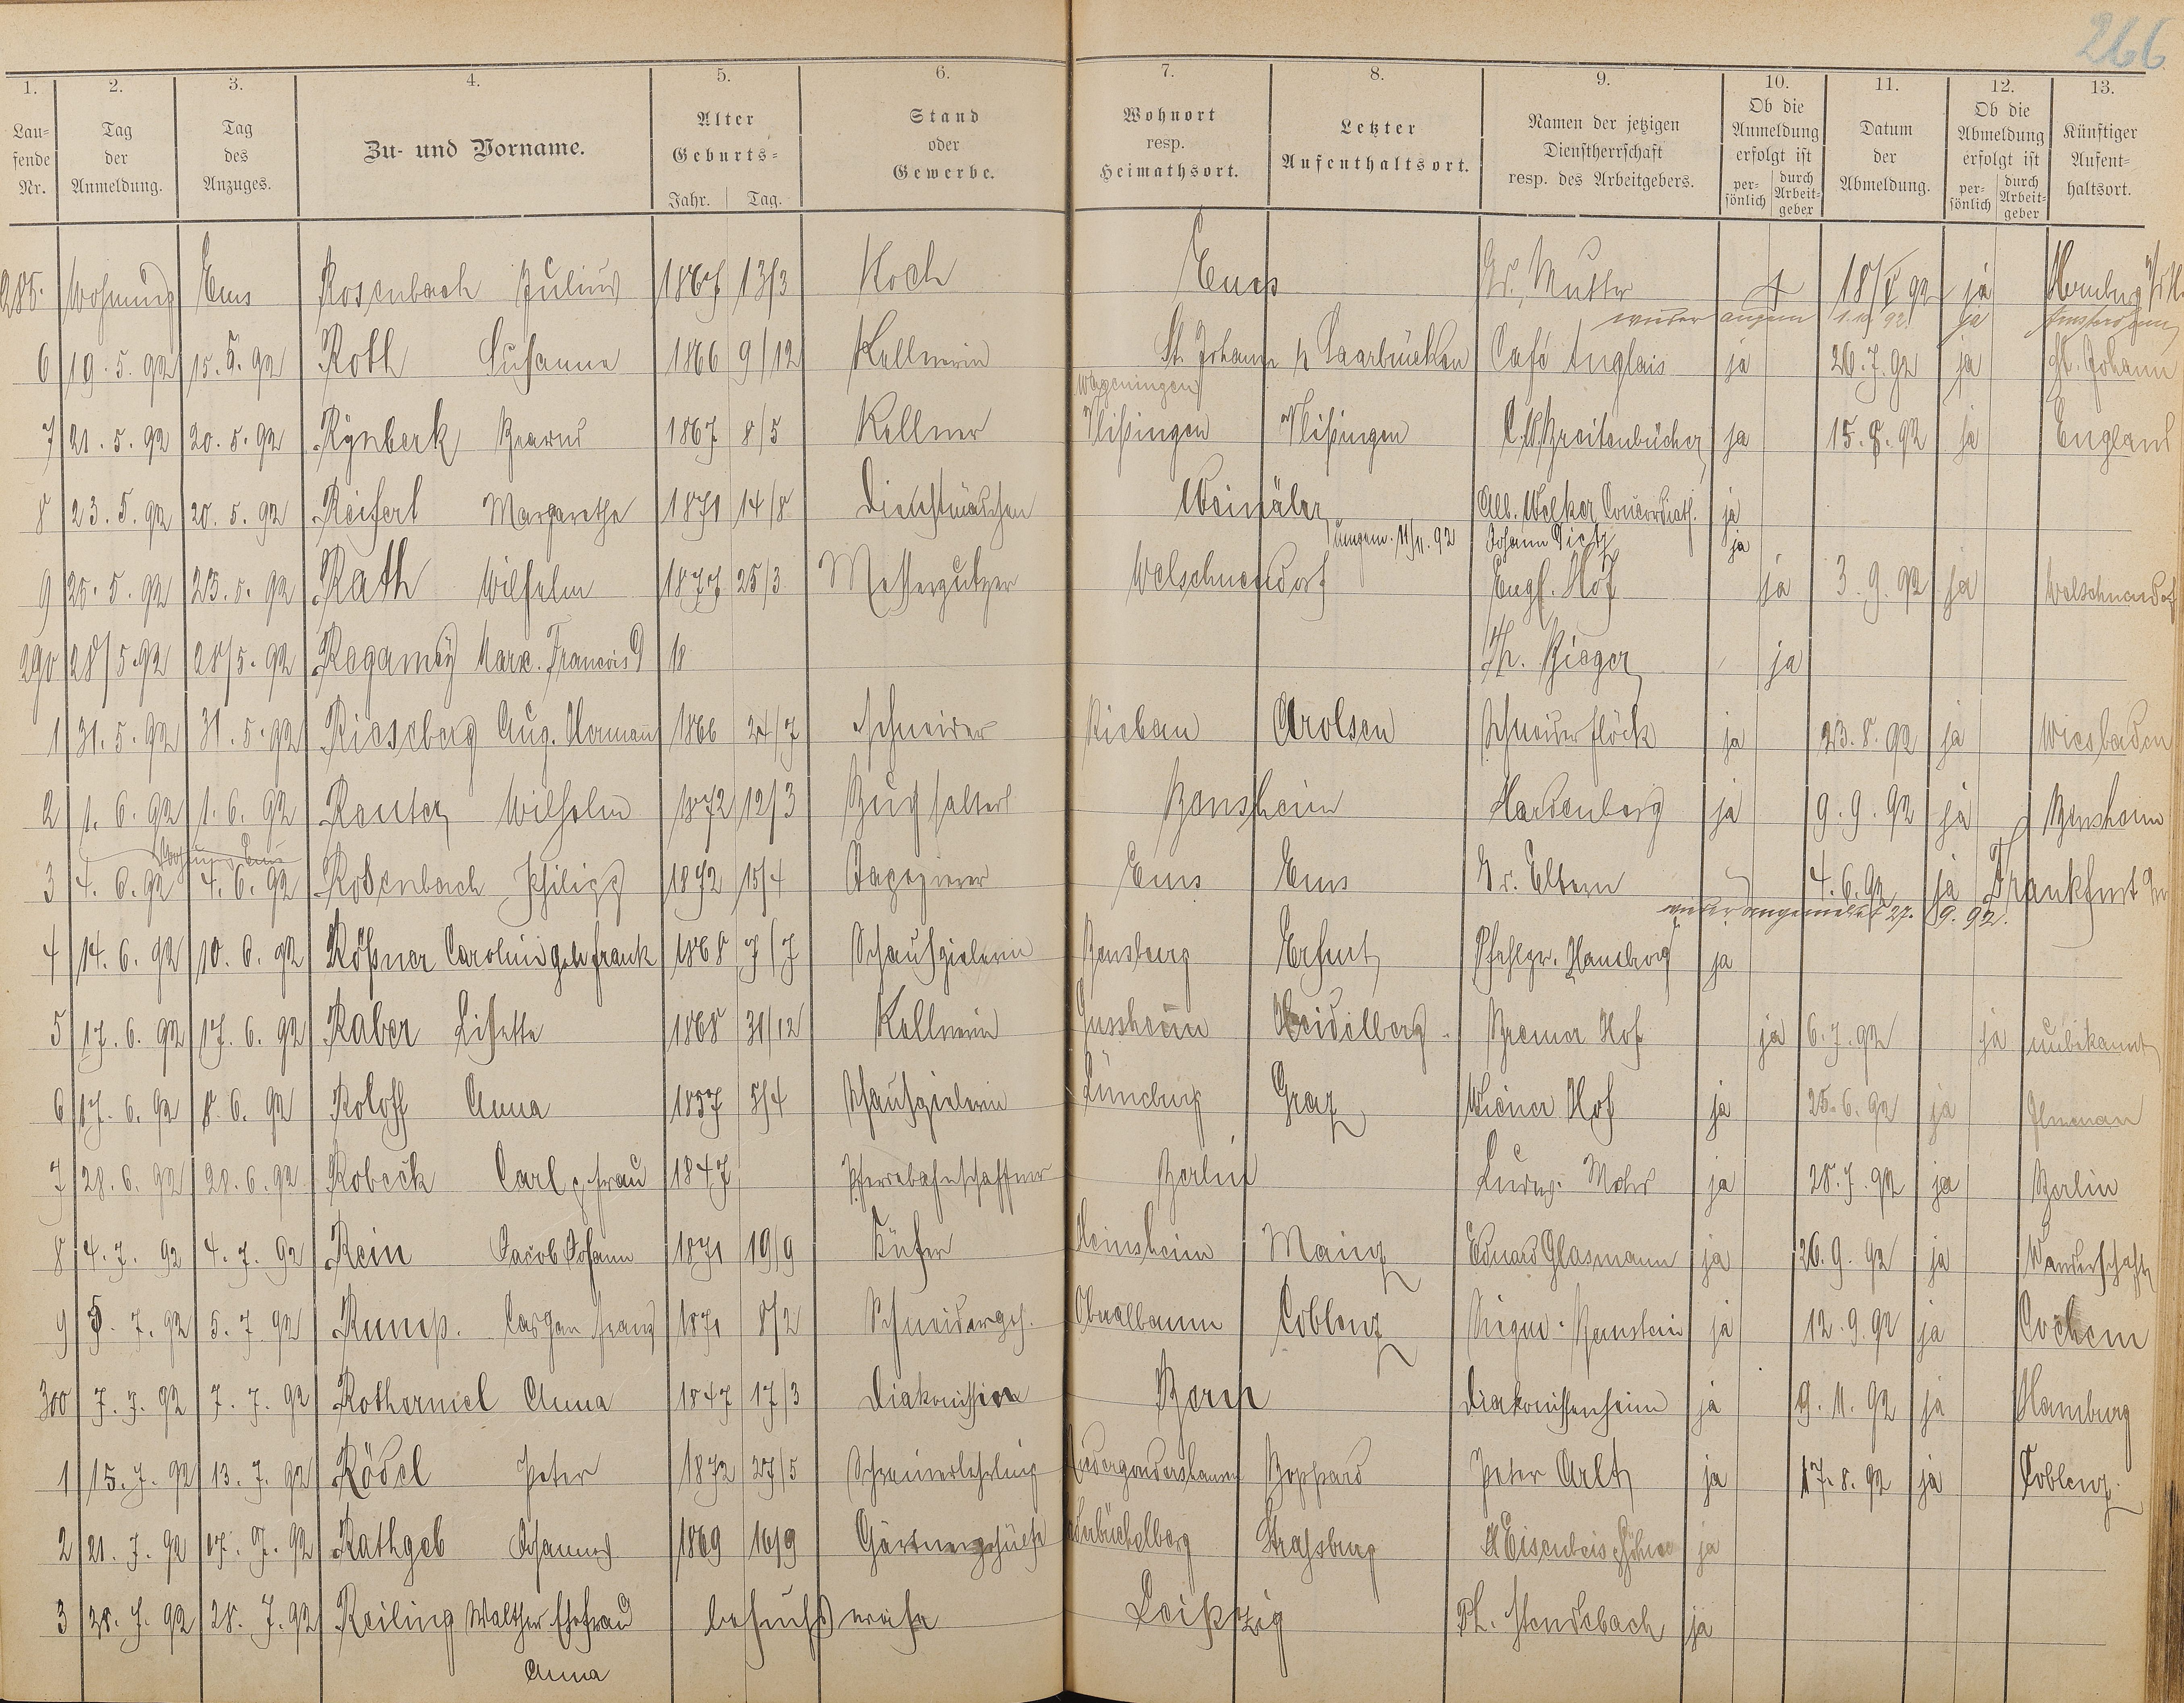 266
1. 2. 3. 4. 5. 6. 7. 8. 9. 10. 11. 12. 13.
Lau=
fende
Nr.
Tag
der
Anmeldung.
Tag
des
Anzuges.
Zu- und Vorname.
Alter
Geburts=
Jahr. Tag.
Stand
oder
Gewerbe.
Wohnort
resp.
Heimathsort.
Letzter
Aufenthaltsort.
Namen der jetzigen
Dienstherrschaft
resp. des Arbeitgebers.
Ob die
Anmeldung
erfolgt ist
per-
sönlich
durch
Arbeit-
geber
Datum
der
Abmeldung.
Ob die
Abmeldung
erfolgt ist
per-
sönlich
durch
Arbeit-
geber
Künftiger
Aufent=
haltsort.
285. Wohnung Ems Rosenbach Julius 1867 13/3 Koch Ems Mutter 18/5 92 ja
wieder angem 1.10.92. ja Amsterdam
6 19. 5. 92 15. 5. 92 Roth Susanna 1866 9/12 Kellnerin St. Johann Saarbrücken Café Anglais ja 26. 7. 92 ja St. Johann
Wageningen
7 21. 5. 92 20. 5. 92 Rynberk 1867 8/5 Kellner Vlißingen Vlißingen Breitenbücher ja 15. 8. 92 ja England
8 23. 5. 92 20. 5. 92 Reiferl Margarethe 1871 14/8 Dienstmädchen Weinäler Alb. Welker ja
11/11. 92 Johann Dietz ja
9 25. 5. 92 23. 5. 92 Rath Wilhelm 1877 25/3 Messerputzer Welschneudorf Engl. Hof ja 3. 9. 92 ja Welschneudorf
290 28/5 92 28/5. 92 Regamey Marc. Francois 18 Th. Rieger ja
1 31. 5. 92 31. 5. 92 Rieseberg Aug. Hermann 1866 24/7 Schneider Rieben Arolsen Schneider Flöck ja 23. 8. 92 ja Wiesbaden
2 1. 6. 92 1. 6. 92 Reuter Wilhelm 1872 12/3 Buchhalter Bensheim Hardenberg ja 9. 9. 92 ja Bensheim
Wohnung Ems
3 4. 6. 92 4. 6. 92 Rosenbach Philipp 1872 15/4 Tapezierer Ems Ems Eltern 4. 6. 92 ja Frankfurt
wieder angemeldet 27. 9. 92.
4 14. 6. 92 10. 6. 92 Rößner Carolina geb Frank 1868 7/7 Schauspielerin Erfurt ja
5 17. 6. 92 17. 6. 92 Raber Lisette 1868 31/12 Kellnerin Heidelberg Bremer Hof ja 6. 7. 92 ja unbekannt
6 17. 6. 92 8. 6. 92 Roloff Anna 1857 5/4 Schauspielerin Lüneburg Graz Wiener Hof ja 25. 6. 92 ja Ilmenau
7 28. 6. 92 28. 6. 92 Robeck Carl & Frau 1847 Pferdebahnschaffner Berlin Ludw. Mohr ja 28. 7. 92 ja Berlin
8 4. 7. 92 4. 7. 92 Rein Jacob Johann 1871 19/9 Küfer Heinsheim Mainz Eduard Glasmann ja 26. 9. 92 ja Wanderschaft
9 5. 7. 92 5. 7. 92 Rump. Caspar Franz 1871 8/2 Schneiderges. Oberalbaum Coblenz Bernstein ja 12. 9. 92 ja Cochem
300 7. 7. 92 7. 7. 92 Rothermel Anna 1847 17/3 Diakonissin Diakonissenheim ja 9. 11. 92 ja Hamburg
1 15. 7. 92 13. 7. 92 Rödel Peter 1872 27/5 Schreinerlehrling Niedergondershausen Boppard Peter Arlt ja 17. 8. 92 ja Coblenz.
2 21. 7. 92 17. 7. 92 Rathgeb Johannes 1869 16/9 Gärtnergehülfe Strassburg Eisenbeis Söhne ja
3 28. 7. 92 28. 7. 92 Reiling Walther Ehefrau besuchsweise Leipzig Ph. Stendebach ja
Anna